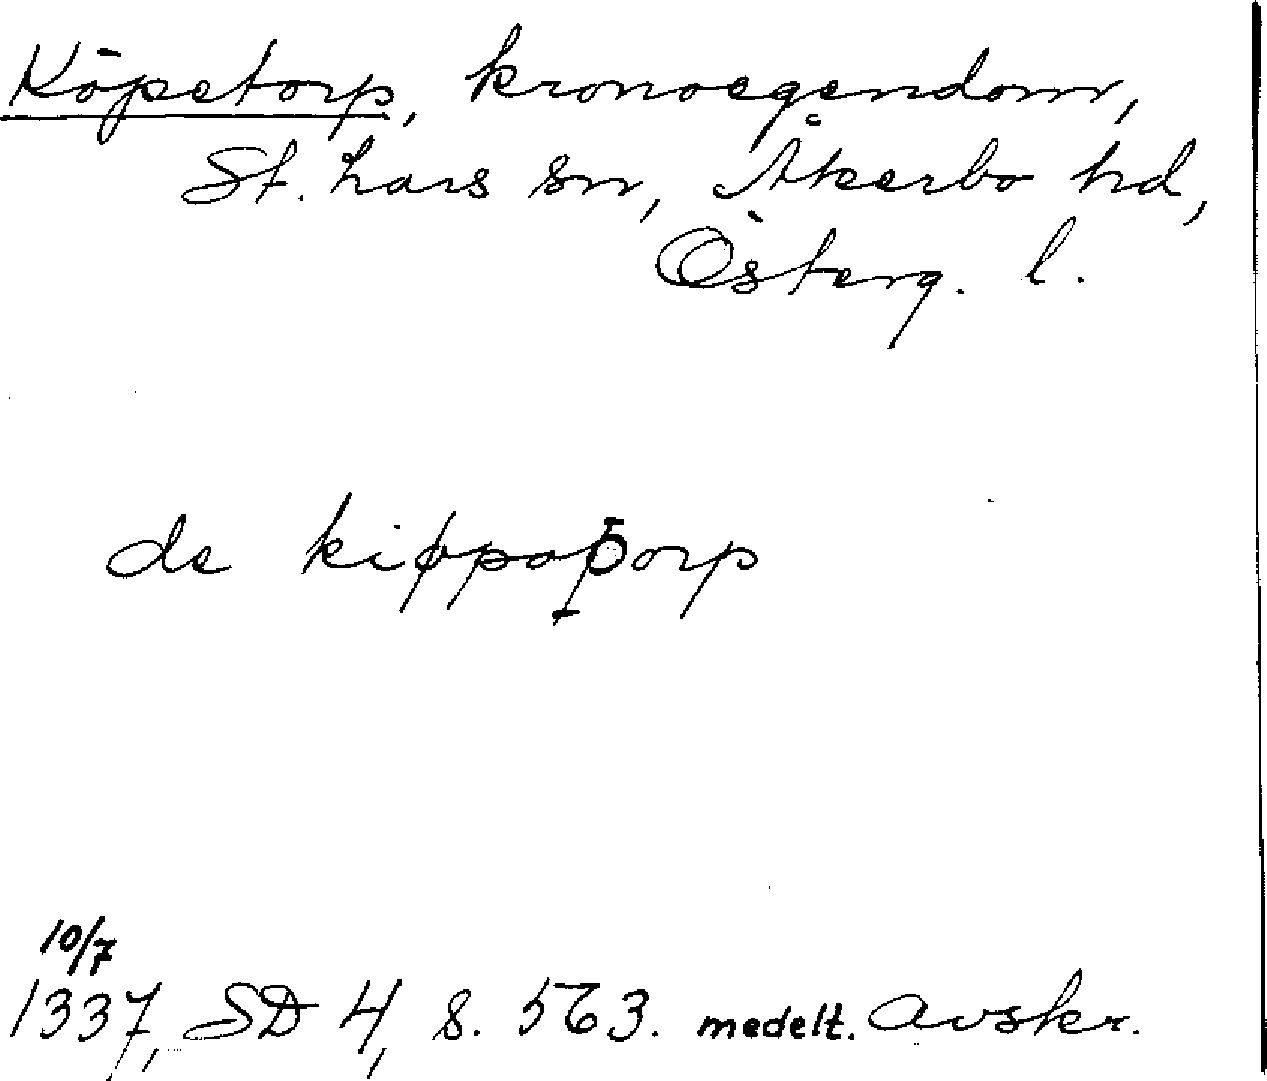 Köpetorp, kronoegendom,
St. Lars sn, Åkerbo hd,
Österg. l.
de kippoþorp
10/7
1337, SD 4, s. 563. medelt. Avskr.